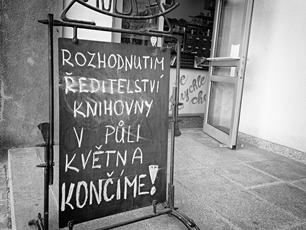 ROZHODNUTIM
ŘEDITELSTVÍ
KNIHOVNY
V PŮLI
KVĚTNA
KONČÍME!